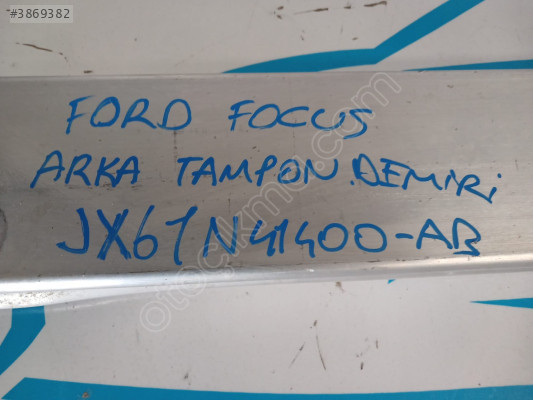 #3869382
FORD FOCUS
ARKA TAMPON.DEMİRİ
JX61N41400-AB
otocikma.com